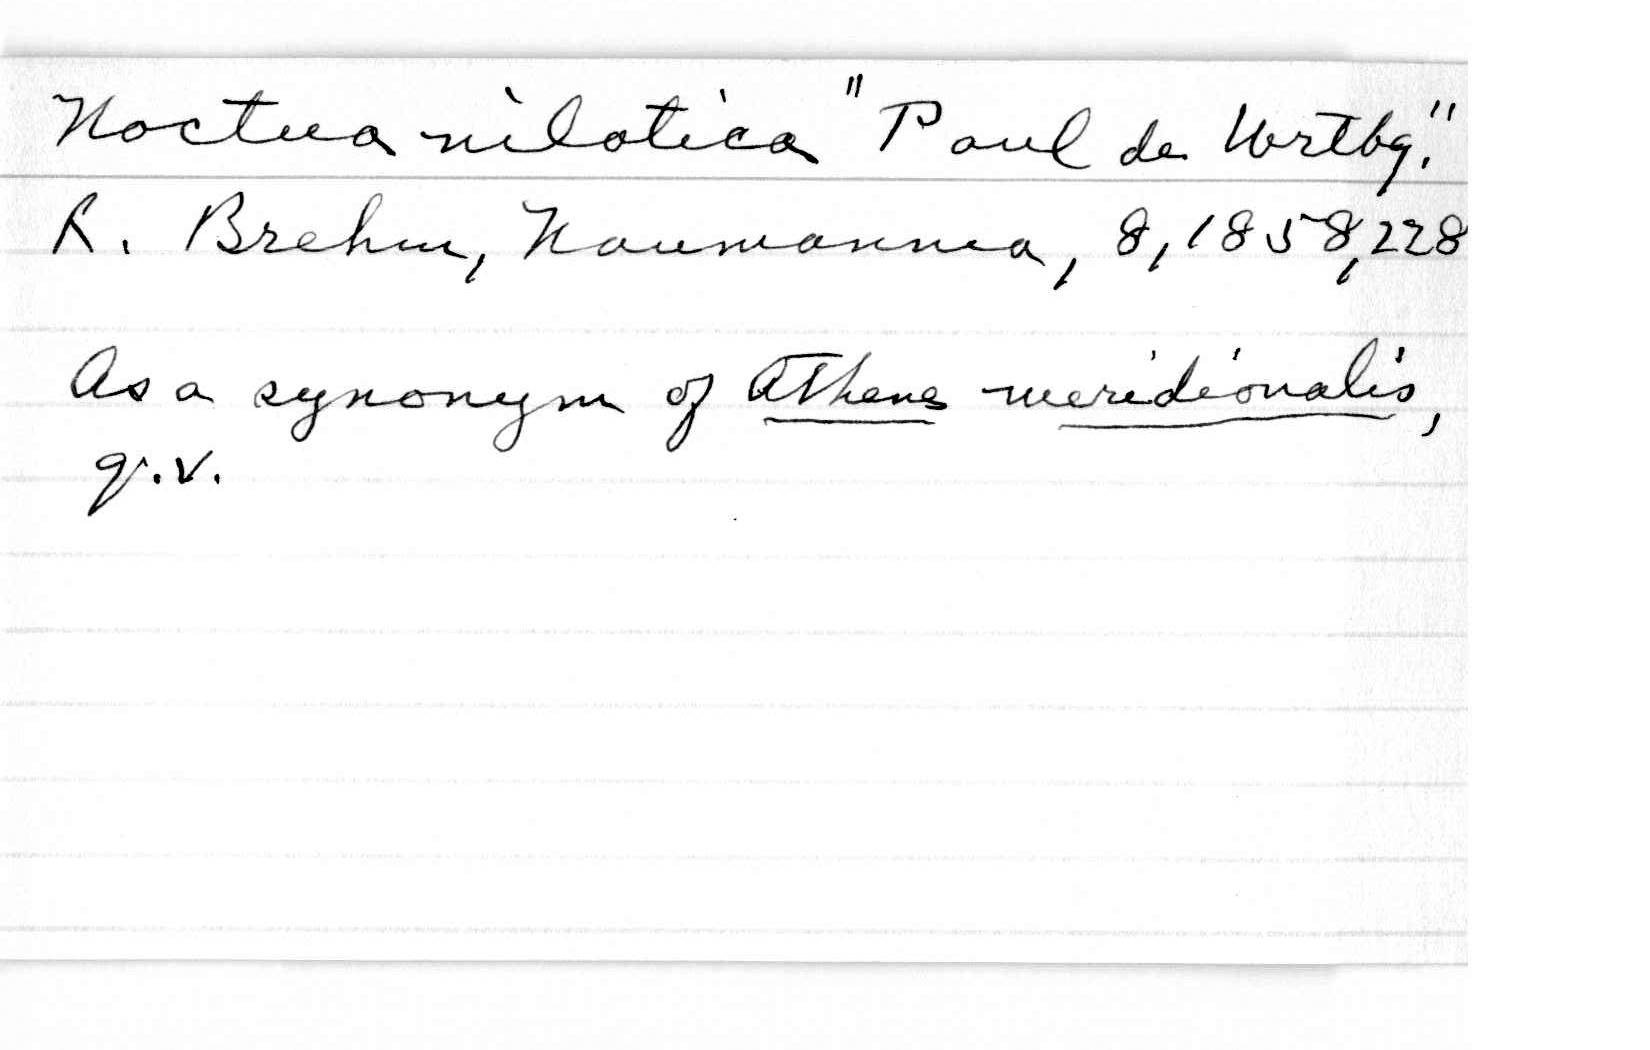 Noctua nilotica "Paul de Wrtbg."
R. Brehm, Naumannia, 8, 1858, 228
As a synonym of Athene meridionalis,
q.v.